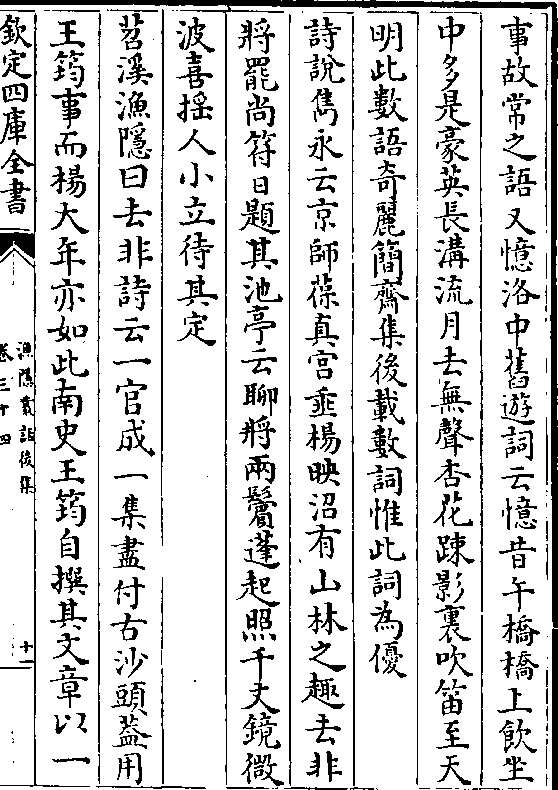 事故常之語又憶洛中舊遊詞云憶昔午橋橋上飲坐
中多是豪英長溝流月去無聲杏花踈影裏吹笛至天
明此數語奇麗簡齋集後載數詞惟此詞為優
詩說雋永云京師葆真宫垂楊映沼有山林之趣去非
將罷尚符日題其池亭云聊將兩鬢蓬起照千丈鏡微
波喜揺人小立待其定
苕溪漁隱曰去非詩云一官成一集盡付古沙頭葢用
王筠事而楊大年亦如此南史王筠自撰其文章以一
欽定四庫全書
漁隱叢話後集
卷三十四
十一